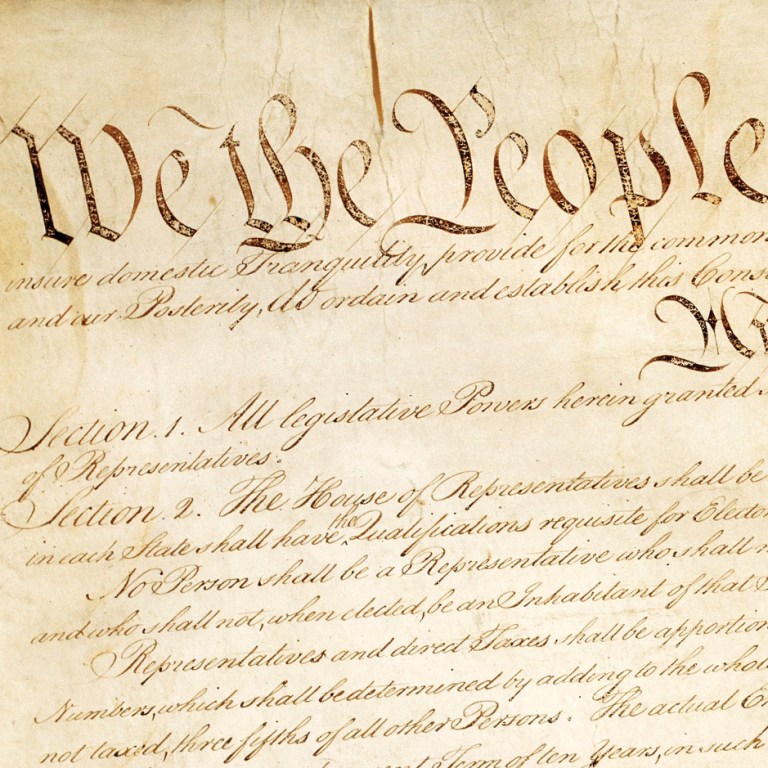 We the People
insure domestic Tranquility, provide for the common
and our Posterity, do ordain and establish this Cons
Section. 1. All legislative Powers herein granted
of Representatives.
Section. 2. The House of Representatives shall be
in each State shall have the Qualifications requisite for Elector
No Person shall be a Representative who shall n
and who shall not, when elected, be an Inhabitant of that
Representatives and direct Taxes shall be apportion
Numbers, which shall be determined by adding to the whol
not taxed, three fifths of all other Persons. The actual En
Term of ten Years, in such